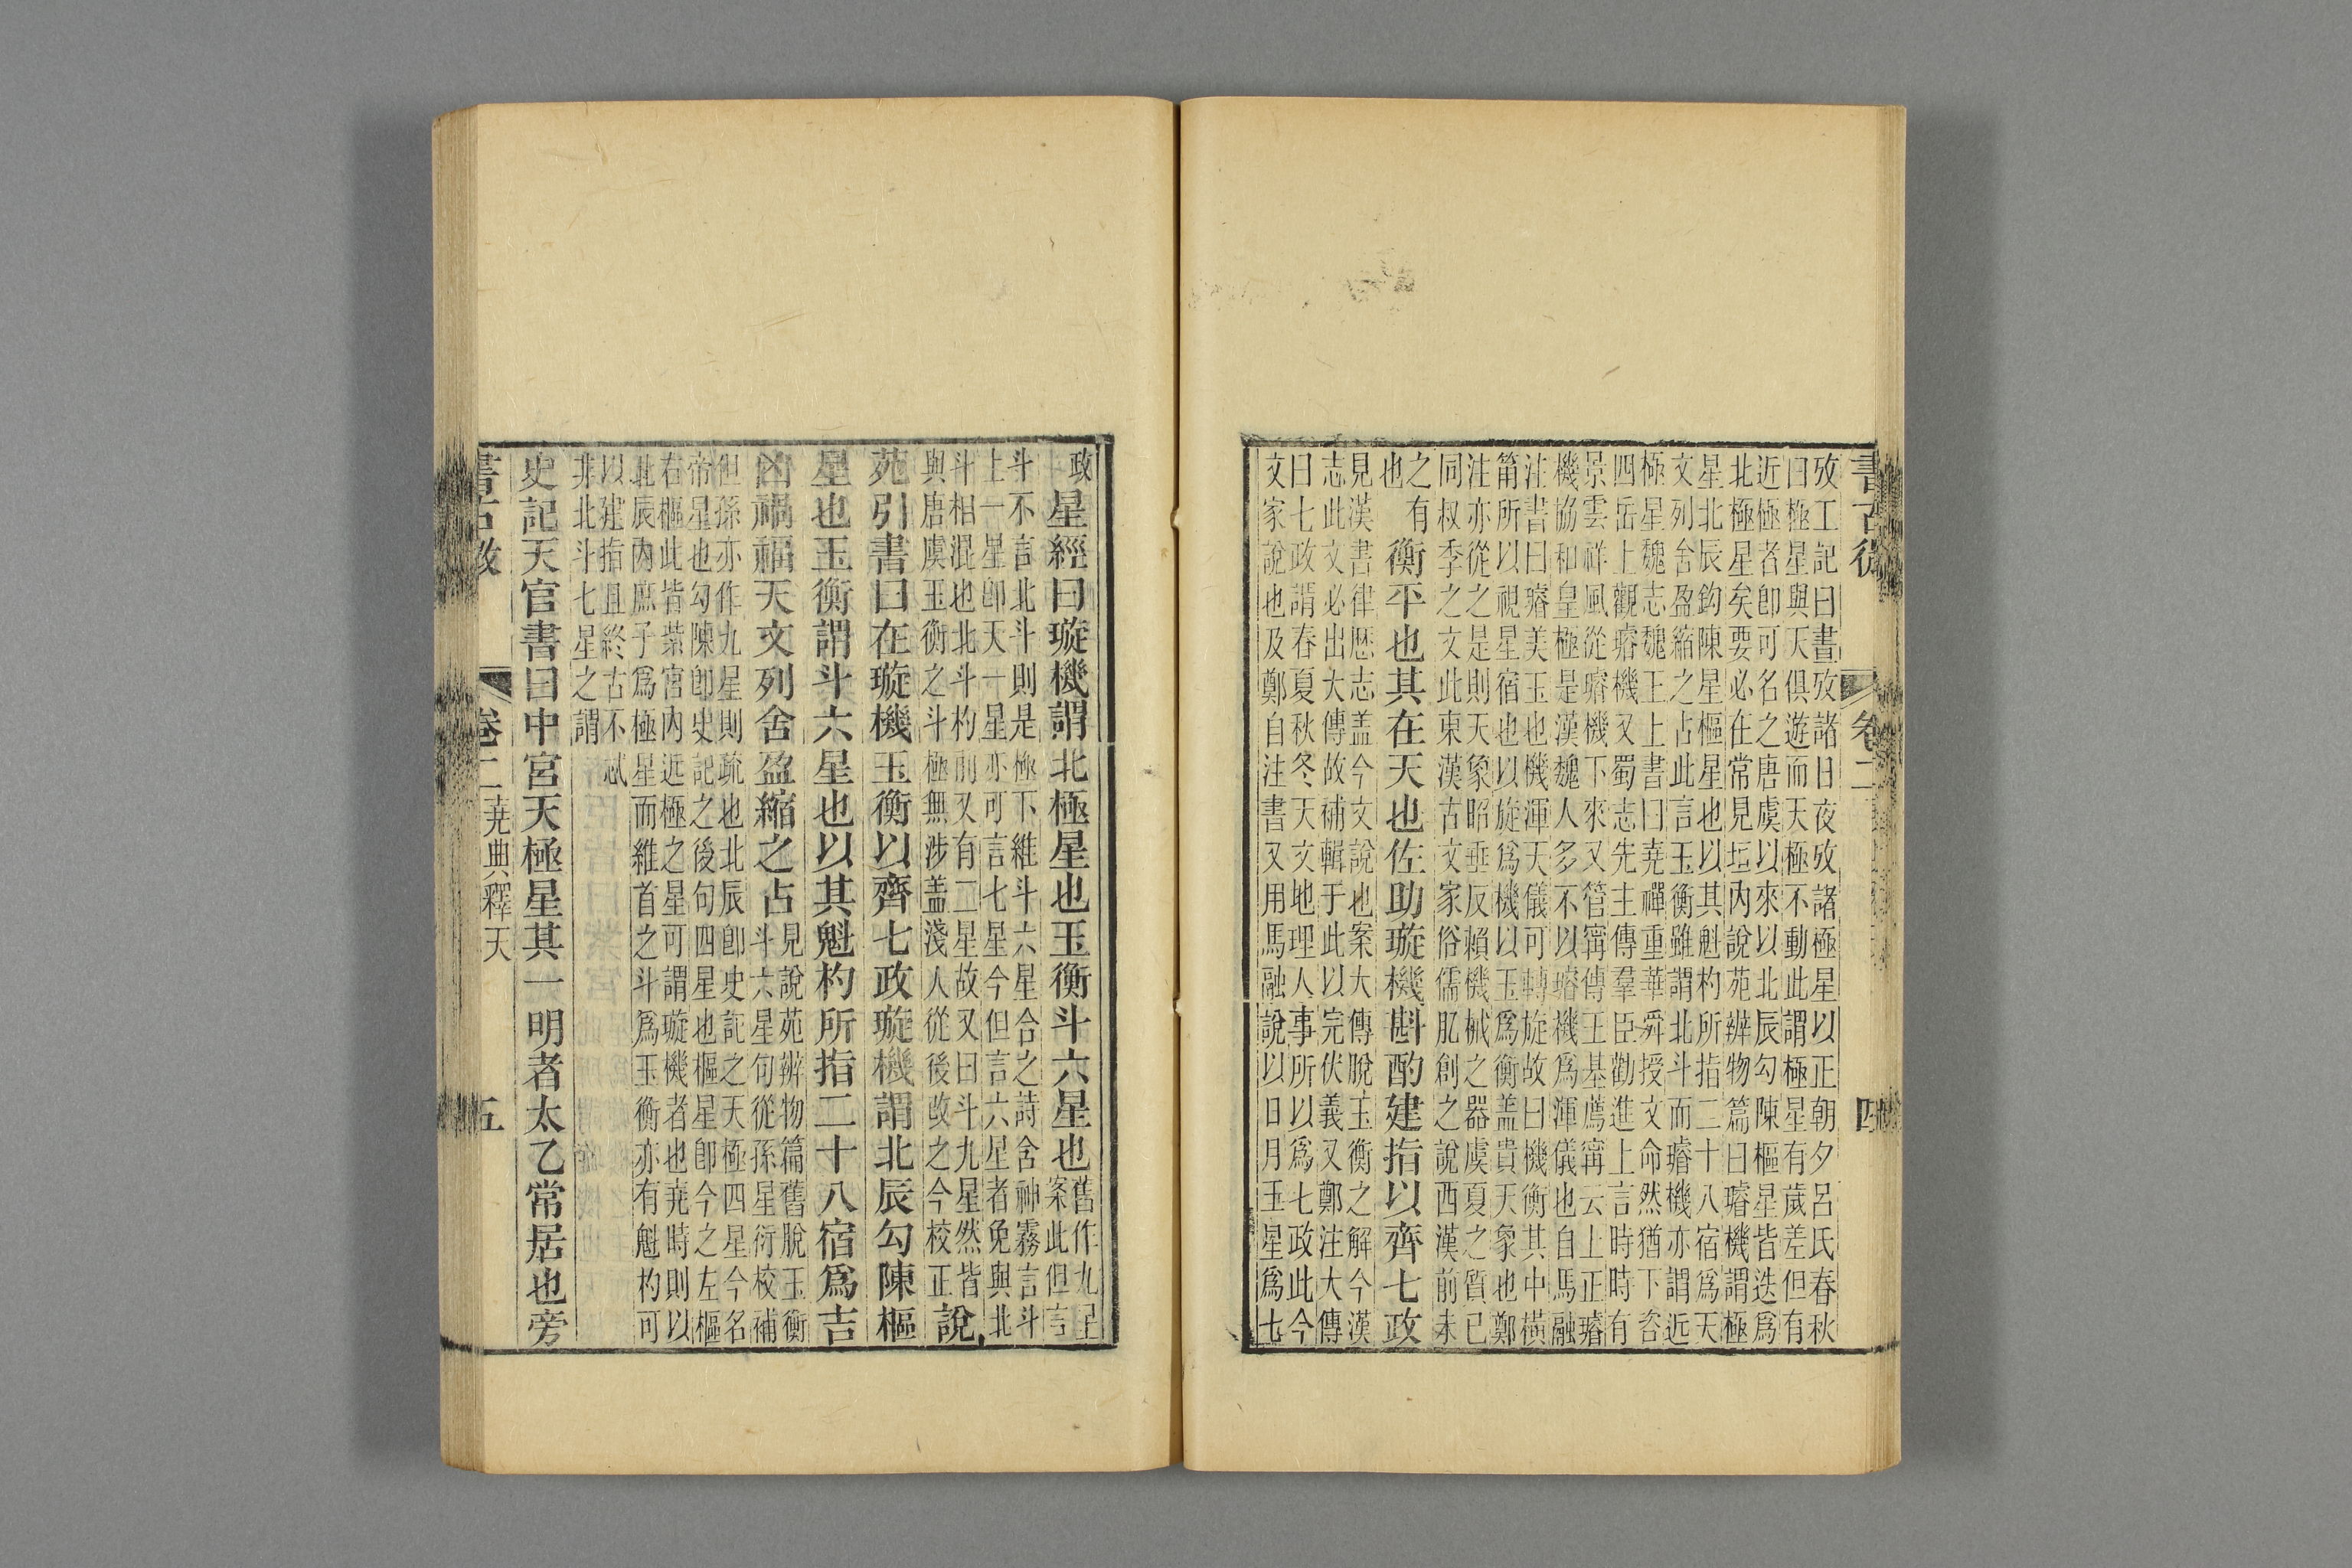 書古微
卷二
四
攷工記曰晝攷諸日夜攷諸極星以正朝夕呂氏春秋
曰極星與天俱遊而天極不動此謂極星有歲差但有
近極者卽可名之唐虞以來以北辰勾陳樞星皆迭爲
北極星矣要必在常見垣內說苑辨物篇曰璿機謂極
星北辰鈎陳星樞星也以其魁杓所指二十八宿爲天
文列舍盈縮之占此言玉衡雖謂北斗而璿機亦謂近
極星魏志魏王上書曰堯禪重華舜授文命然猶下咨
四岳上觀璿機又蜀志先主傳羣臣勸進上言時時有
景雲祥風從璿機下來又管甯傳王基薦甯云上正璿
機協和皇極是漢魏人多不以璿機爲渾儀也自馬融
注書曰璿美玉也機渾天儀可轉旋故曰機衡其中橫
筩所以視星宿也以旋爲機以玉爲衡盖貴天象也鄭
注亦從之是則天象昭垂反賴機械之器虞夏之質已
同叔季之文此東漢古文家俗儒肊創之說西漢前未
之有
也
衡平也其在天也佐助璇機斟酌建指以齊七政
見漢書律歷志盖今文說也案大傳脫玉衡之解今漢
志此文必出大傳故補輯于此以完伏義又鄭注大傳
曰七政謂春夏秋冬天文地理人事所以爲七政此今
文家說也及鄭自注書又用馬融說以日月五星爲七
政
星經曰璇機謂北極星也玉衡斗六星也
舊作九星
案此但言
斗不言北斗則是極下維斗六星合之詩含神霧言斗
上一星卽天一星亦可言七星今但言六星者免與北
斗相混也北斗杓前又有二星故又曰斗九星然皆
與唐虞玉衡之斗極無涉盖淺人從後改之今校正
說
苑引書曰在璇機玉衡以齊七政璇機謂北辰勾陳樞
星也玉衡謂斗六星也以其魁杓所指二十八宿爲吉
凶禍福天文列舍盈縮之占
見說苑辨物篇舊脫玉衡
斗六星句從孫星衍校補
但孫亦作九星則疏也北辰卽史記之天極四星今名
帝星也勾陳卽史記之後句四星也樞星卽今之左樞
右樞此皆紫宮內近極之星可謂璇機者也堯時則以
北辰內庶子爲極星而維首之斗爲玉衡亦有魁杓可
以建指且終古不忒
非北斗七星之謂
史記天官書曰中宮天極星其一明者太乙常居也旁
書古微
卷二
堯典釋天
五